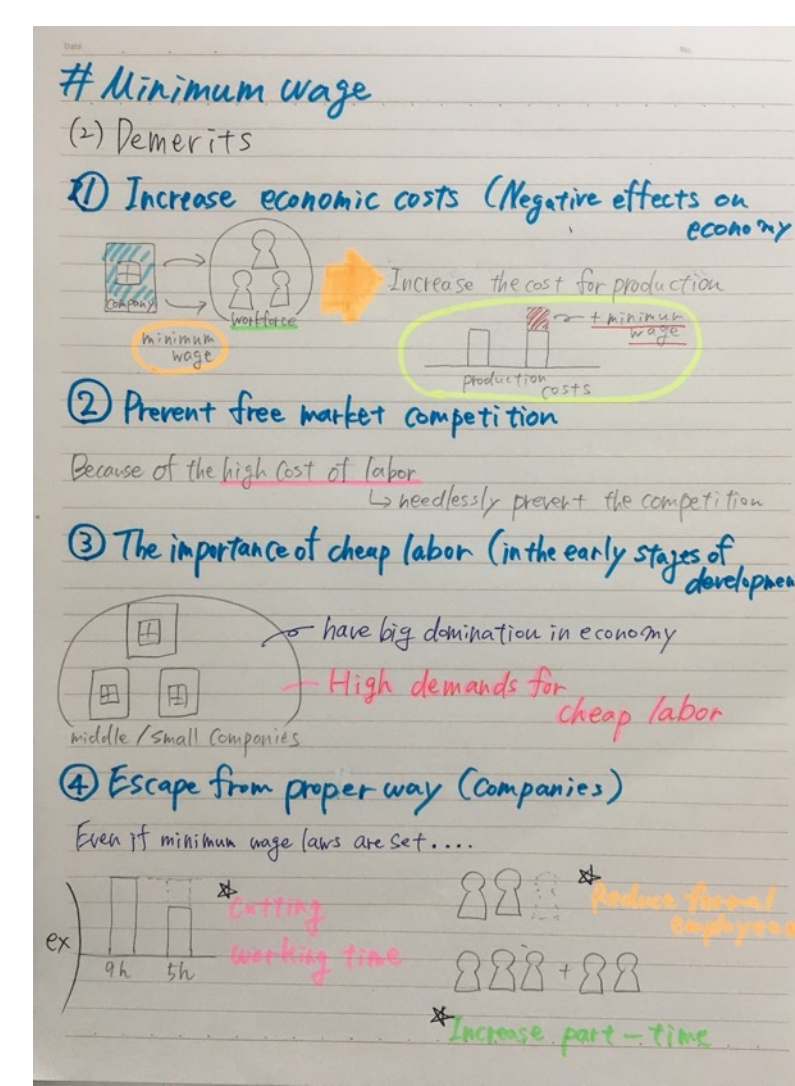 Date
No.
# Minimum wage
(2) Demerits
① Increase economic costs (Negative effects on
economy
company
workforce
minimum
wage
Increase the cost for production
+ minimum
wage
production
costs
② Prevent free market competition
Because of the high cost of labor
↳ needlessly prevent the competition
③ The importance of cheap labor (in the early stages of
developmen
have big domination in economy
High demands for
cheap labor
middle / small companies
④ Escape from proper way (companies)
Even if minimum wage laws are set....
ex)
9h
5h
☆ Cutting
working time
☆ Reduce formal
employees
+
☆ Increase part-time